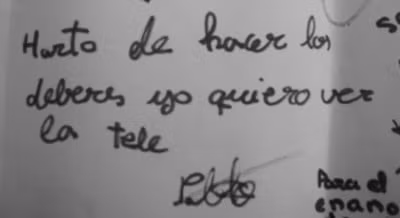 Harto de hacer los
deberes yo quiero ver
la tele
Pablo
Para el
enano